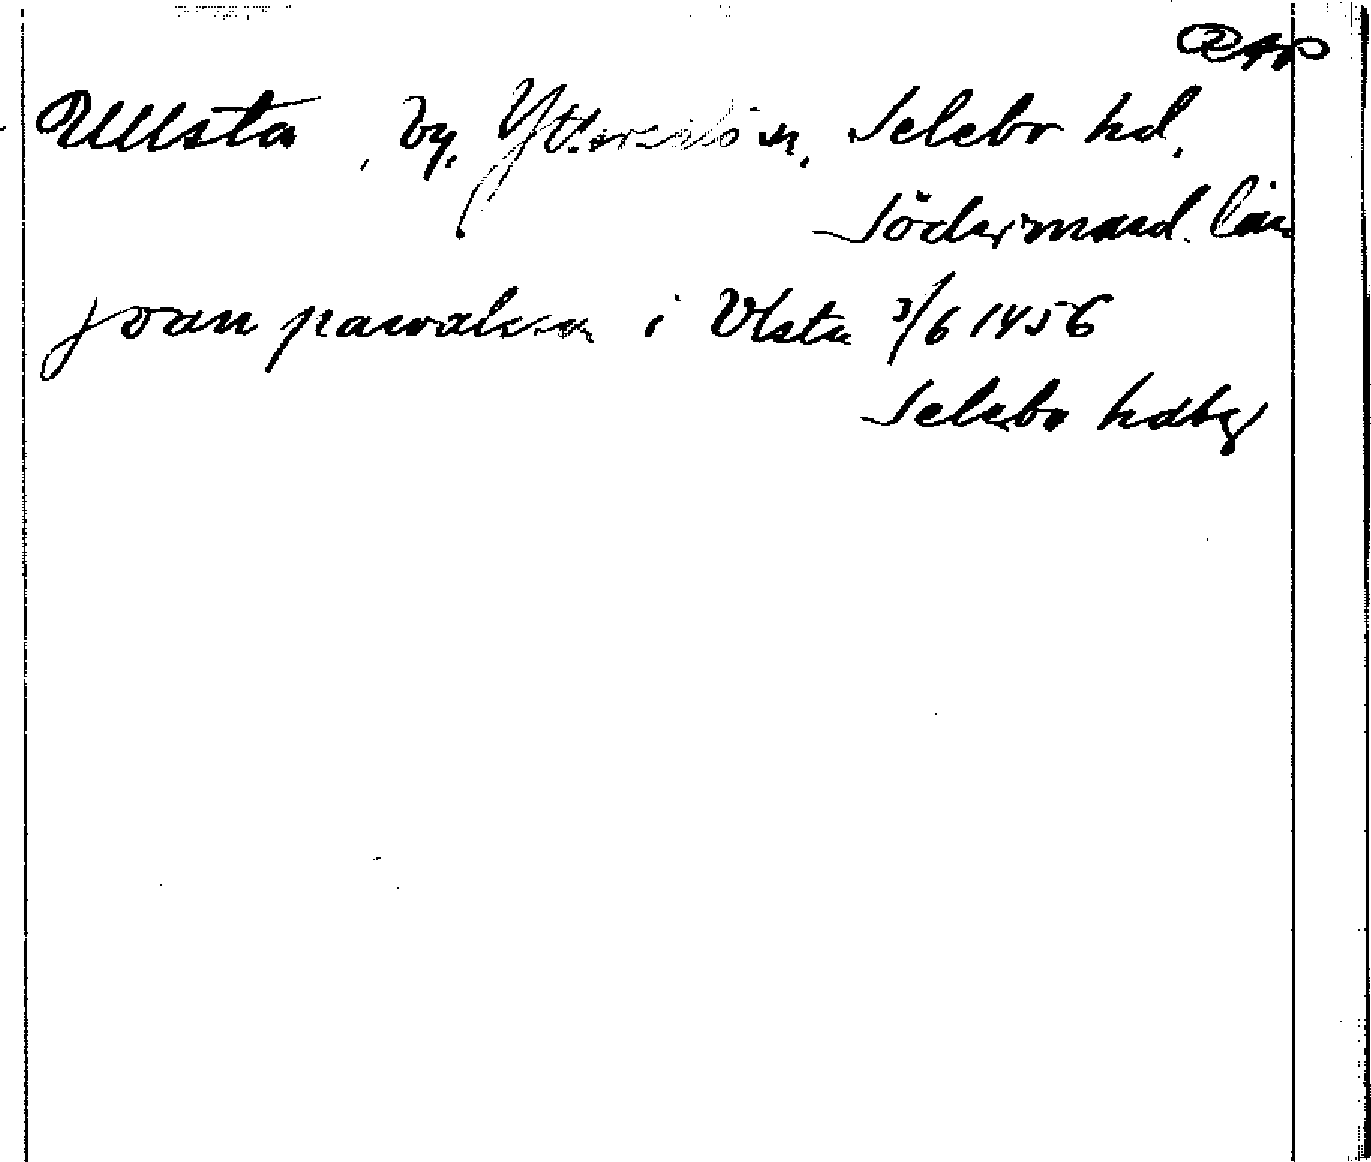 Ullsta, by, Ytterselö sn, Selebo hd,
Södermanl. län
joan pawalsson i Vlsta 3/6 1456
Selebo hdbr